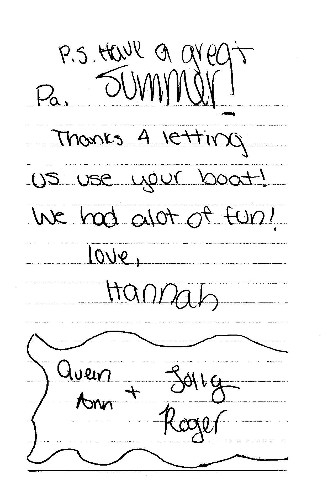 P.S. Have a great
summer!
Pa,
Thanks 4 letting
us use your boat!
We had alot of fun!
love,
Hannah
Queen
Ann + Jolly
Roger